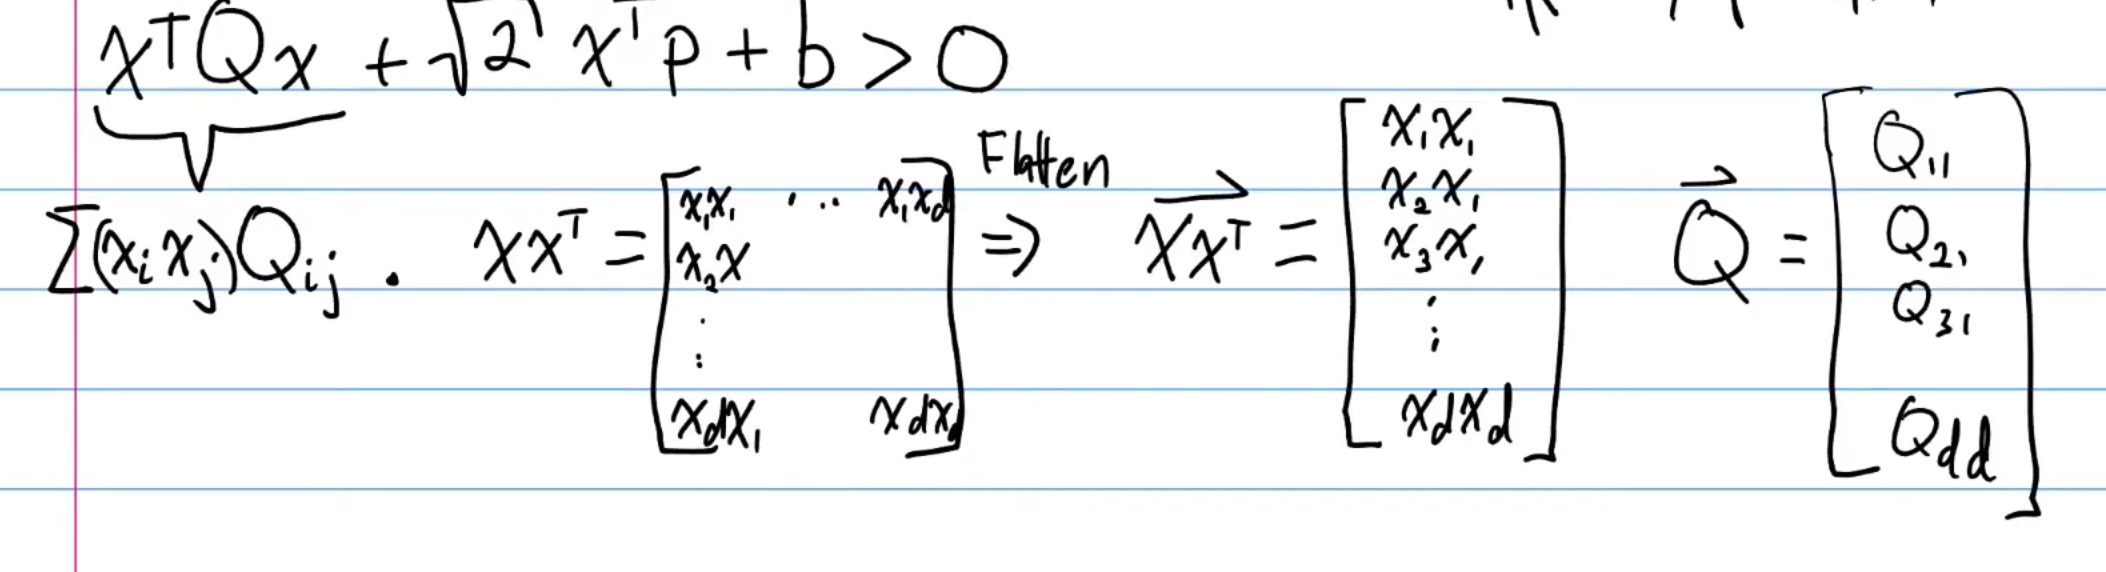 xᵀQx + √2 xᵀp + b > 0
Flatten
Σ(xᵢxⱼ)Qᵢⱼ . xxᵀ = [x₁x₁ ... x₁x_d ; x₂x ⋮ ; x_dx₁ x_dx_d] ⇒ \overrightarrow{xxᵀ} = [x₁x₁ ; x₂x₁ ; x₃x₁ ; ⋮ ; x_dx_d] \vec{Q} = [Q₁₁ ; Q₂₁ ; Q₃₁ ; Q_dd]